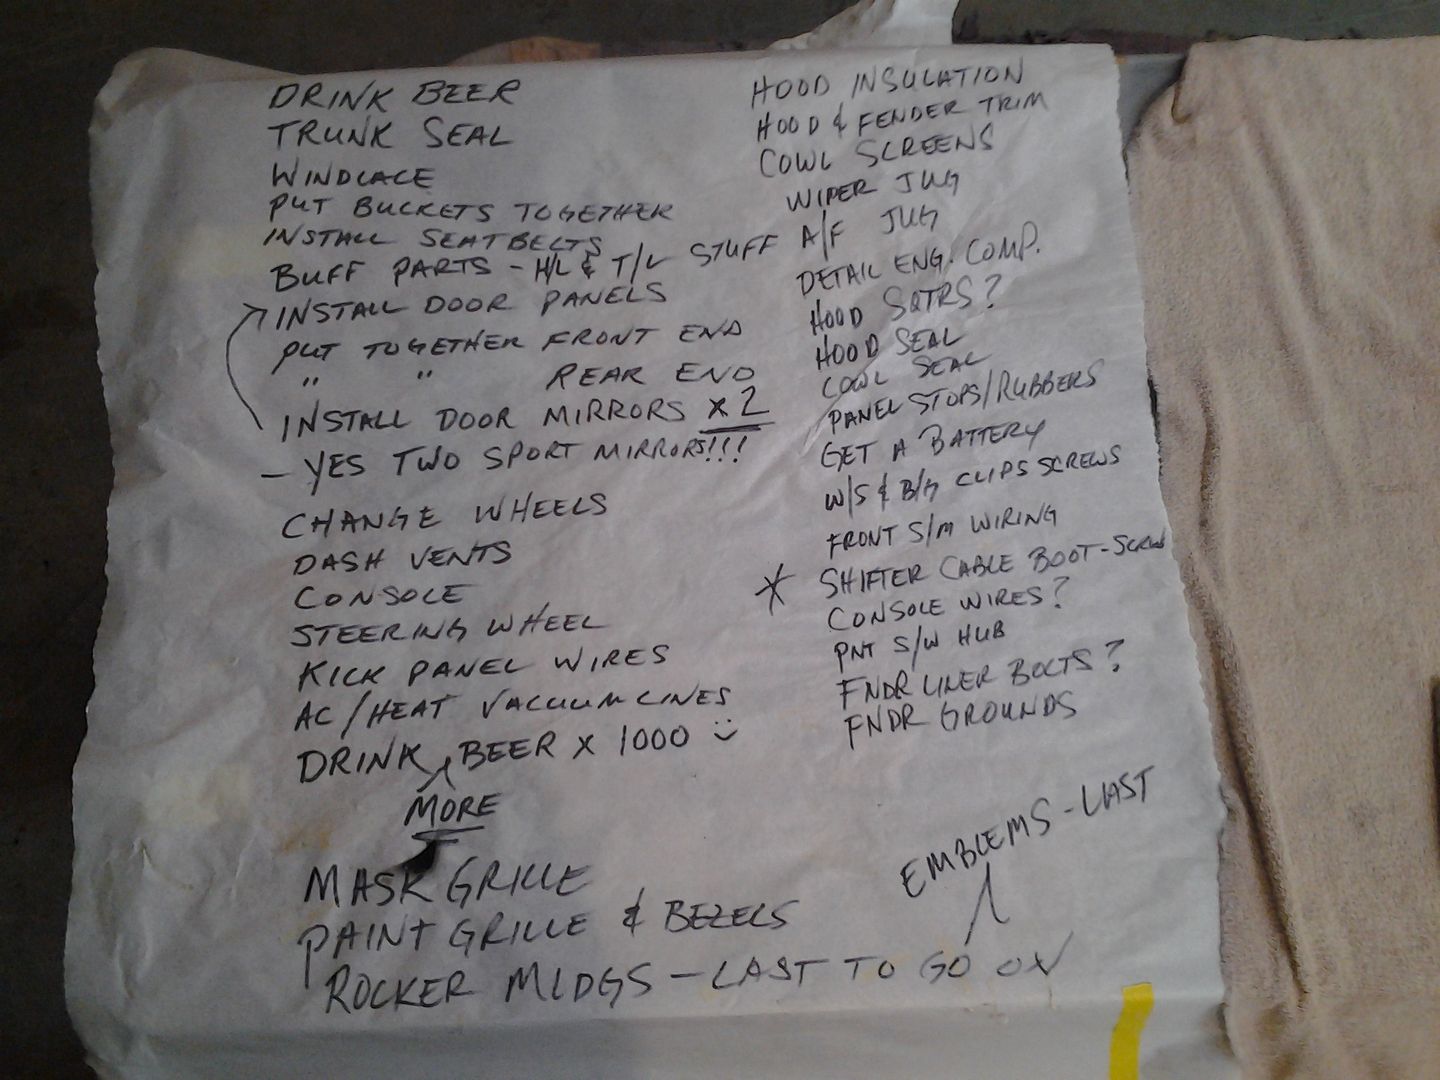 DRINK BEER
TRUNK SEAL
WINDLACE
PUT BUCKETS TOGETHER
INSTALL SEATBELTS
BUFF PARTS - H/L & T/L STUFF
INSTALL DOOR PANELS
PUT TOGETHER FRONT END
" " REAR END
INSTALL DOOR MIRRORS x 2
- YES TWO SPORT MIRRORS!!!
CHANGE WHEELS
DASH VENTS
CONSOLE
STEERING WHEEL
KICK PANEL WIRES
AC/HEAT VACUUM LINES
DRINK BEER x 1000 :)
MORE
MASK GRILLE
PAINT GRILLE & BEZELS
ROCKER MLDGS - LAST TO GO ON
HOOD INSULATION
HOOD & FENDER TRIM
COWL SCREENS
WIPER JUG
A/F JUG
DETAIL ENG. COMP.
HOOD SQTRS?
HOOD SEAL
COWL SEAL
PANEL STOPS/RUBBERS
GET A BATTERY
W/S & B/G CLIPS SCREWS
FRONT S/M WIRING
* SHIFTER CABLE BOOT-SCREW
CONSOLE WIRES?
PNT S/W HUB
FNDR LINER BOLTS?
FNDR GROUNDS
EMBLEMS - LAST